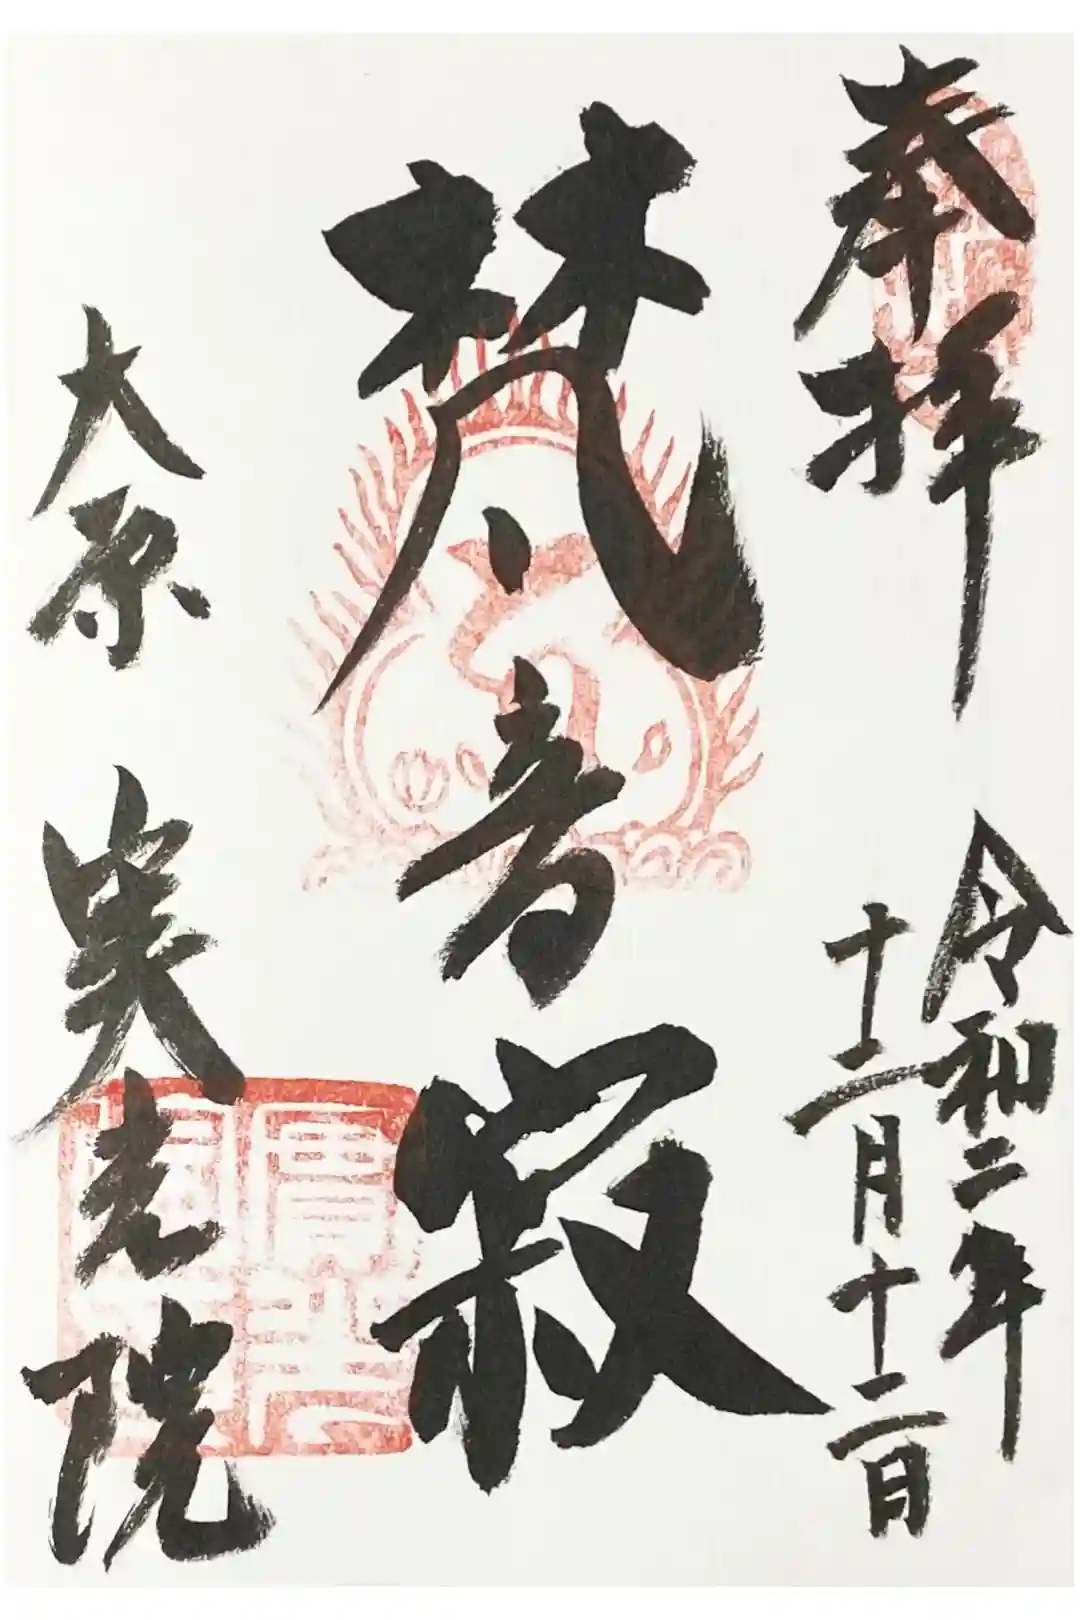 奉拝
令和二年
十二月十二日
梵音寂
大原 実光院